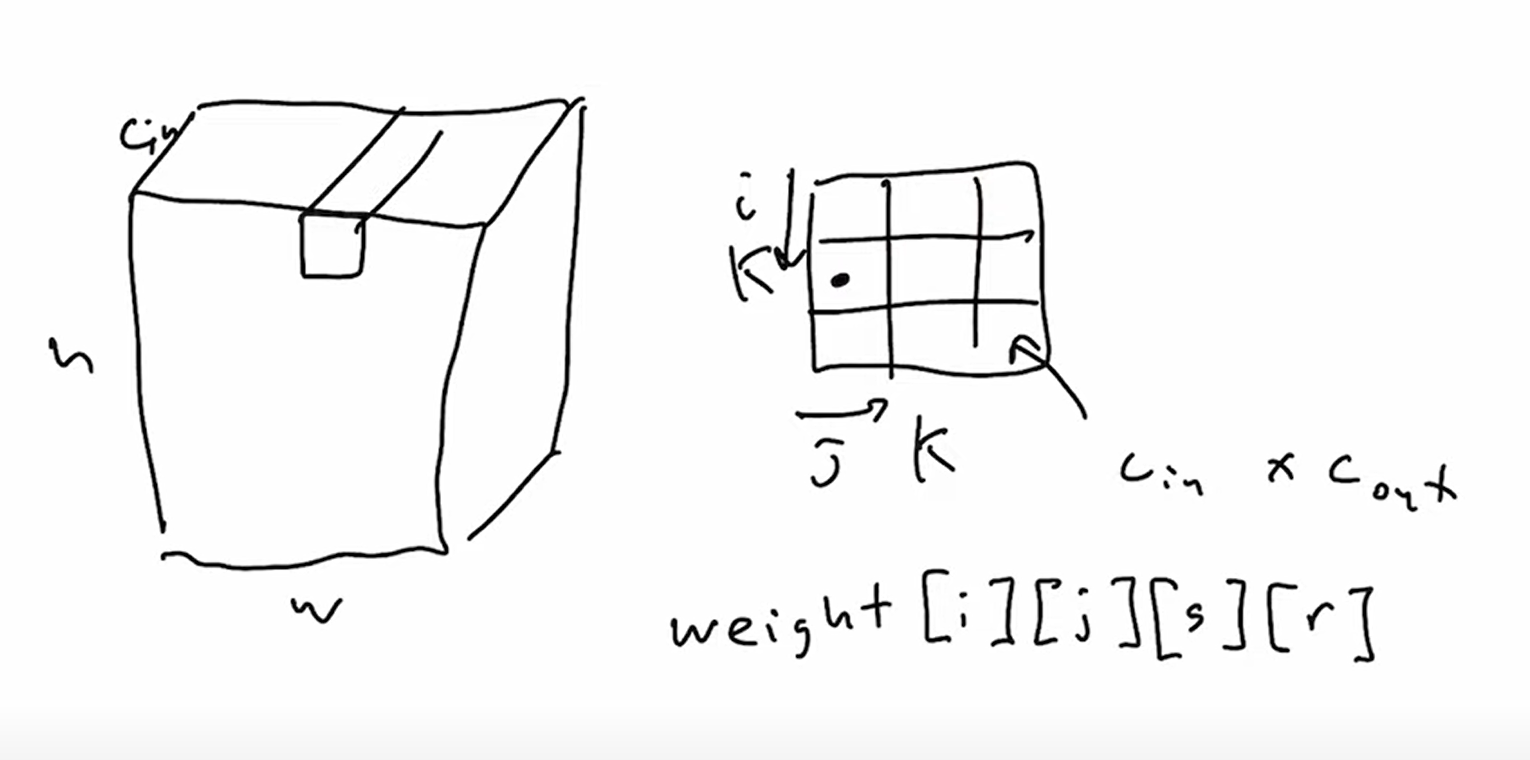 Cin
h
w
i
K
j K
Cin x Cout
weight [i][j][s][r]